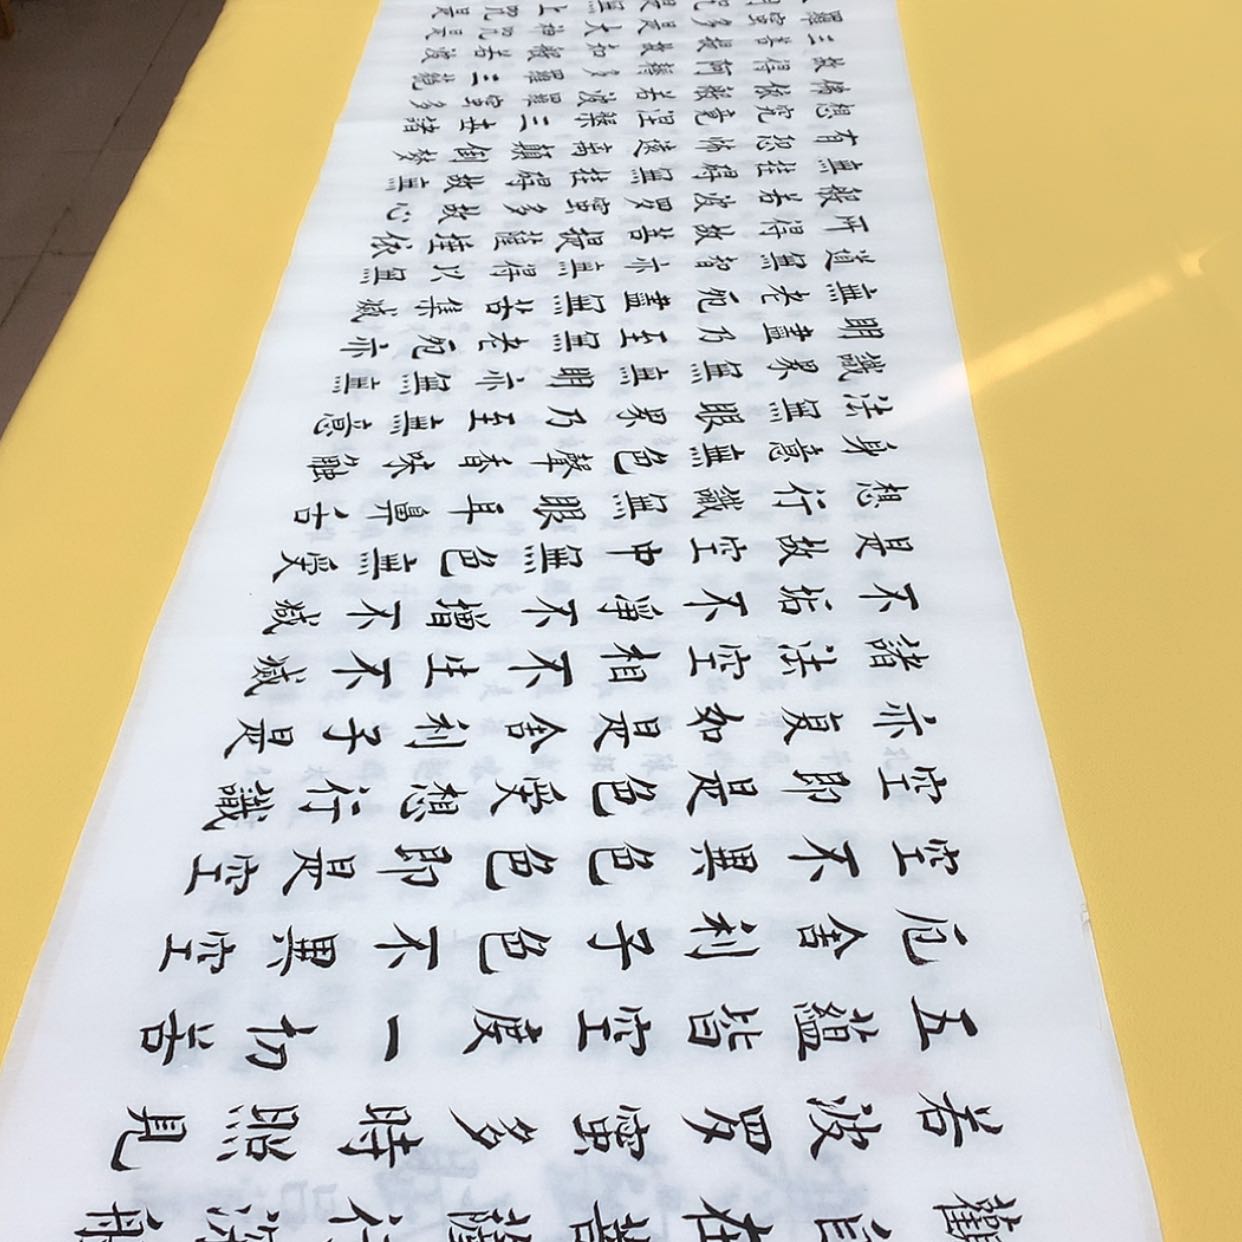 觀自在菩薩行深般
若波罗蜜多時照見
五蘊皆空度一切苦
厄舍利子色不異空
空不異色色即是空
空即是色受想行識
亦复如是舍利子是
諸法空相不生不滅
不垢不淨不增不減
是故空中無色無受
想行識無眼耳鼻舌
身意無色聲香味觸
法無眼界乃至無意
識界無無明亦無無
明盡乃至無老死亦
無老死盡無苦集滅
道無智亦無得以無
所得故菩提薩埵依
般若波罗蜜多故心
無挂碍無挂碍故無
有恐怖遠离顛倒夢
想究竟涅槃三世諸
佛依般若波羅蜜多
故得阿耨多羅三藐
三菩提故知般若波
羅蜜多是大神咒是